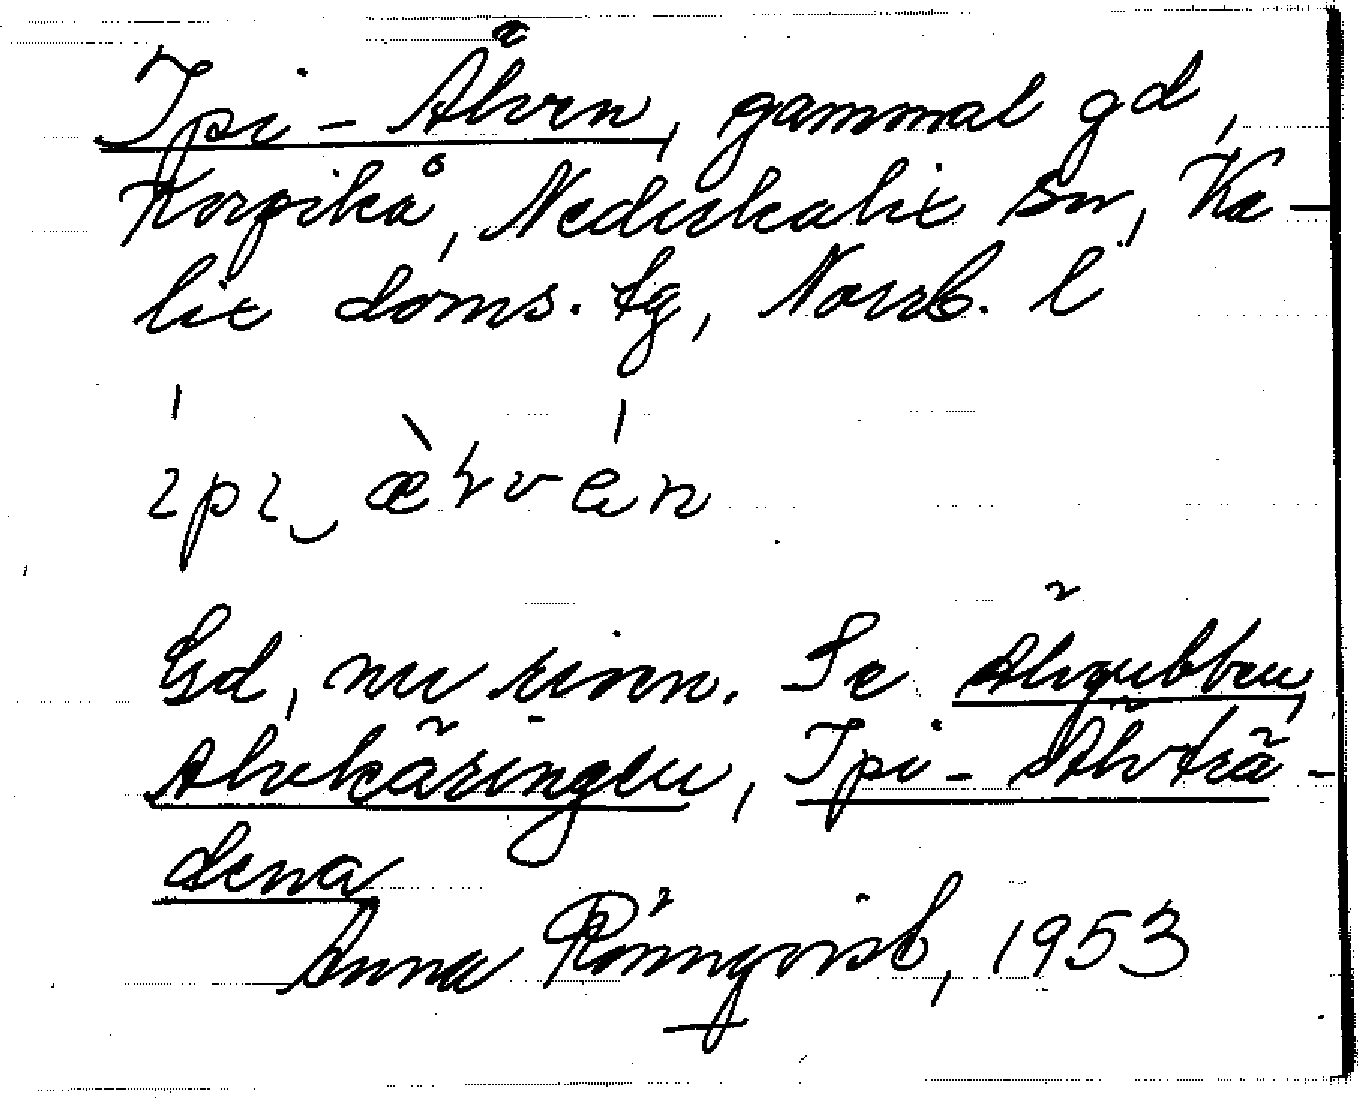 Ipi-Älven, gammal gd,
Korpikå, Nederkalix sn, Ka-
lix doms. tg, Norrb. l
ipi ̮ æ̀ɽvén
Gd, nu riven. Se Älvgubben,
Älvkäringen, Ipi-Älvträ-
dena
Anna Rönnqvist, 1953